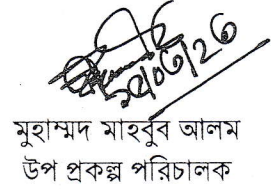 মুহাম্মদ মাহবুব আলম
উপ প্রকল্প পরিচালক